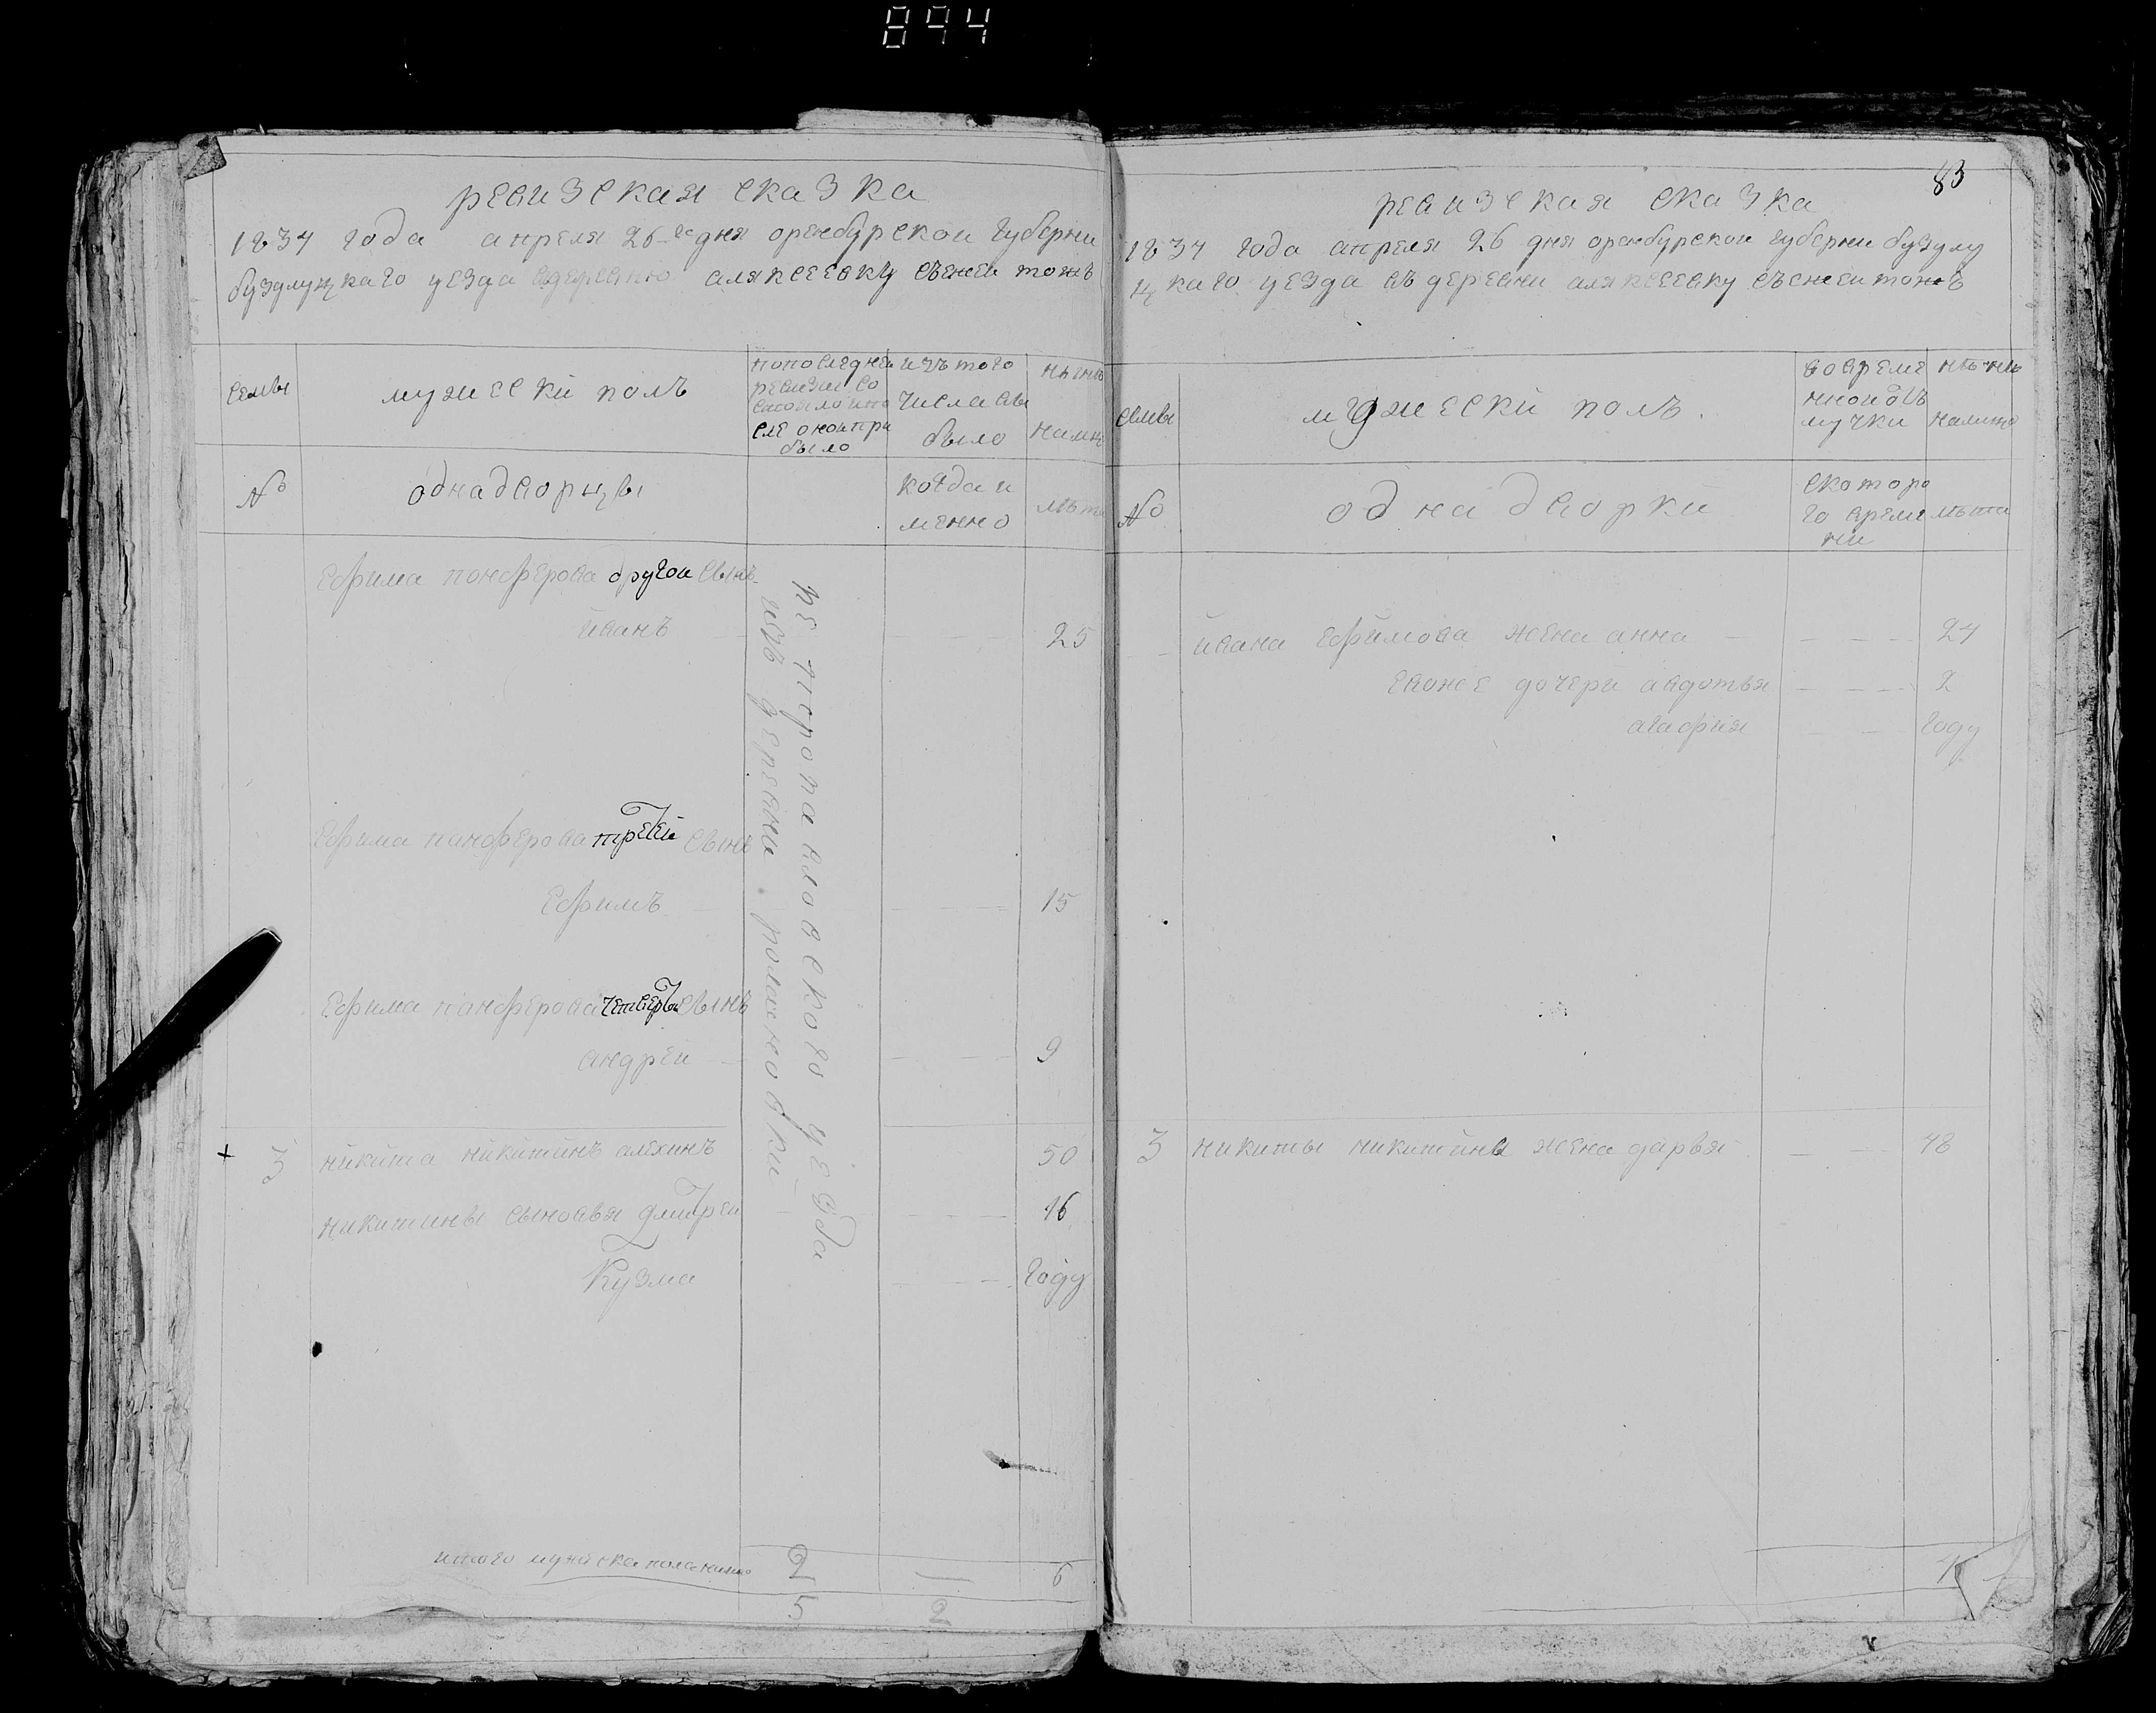 894
ревизская сказка
1834 года апреля 26-го дня оренбурской губерни
бузулуцкаго уезда аляксеевку съежей тожъ
семьи
мужески полъ
нопоследней
ревизии со
стояло ипо
сле онои при
было
изъ того
числа вы
было
ныне
налицо
№
однадворцы
когда и
менно
лета
Ефима понферова другой сынъ
иванъ
25
Ефима панферова третей сынъ
Ефимъ
15
Ефима панферова четверты сынъ
андреи
9
3 никита никитинъ алехинъ 50
никитины сыновья дмитреи 16
Кузма году
петропавловского уезда
изъ деревни романовки
итого мужеска пола налицо 2 — 6
5 2
83
ревизская сказка
1834 года апреля 26 дня оренбурской губерни бузулу
цкаго уезда въ деревни аляксеевку съежей тожъ
семьи
мужески полъ.
вовреме
нной отъ
лучки
ныне
налицо
№
однадворки
скоторо
го време
ни
лета
ивана Ефимова жена анна 24
Евоже дочери авдотья 2
агафия году
3 никиты никитины жена дарья 48